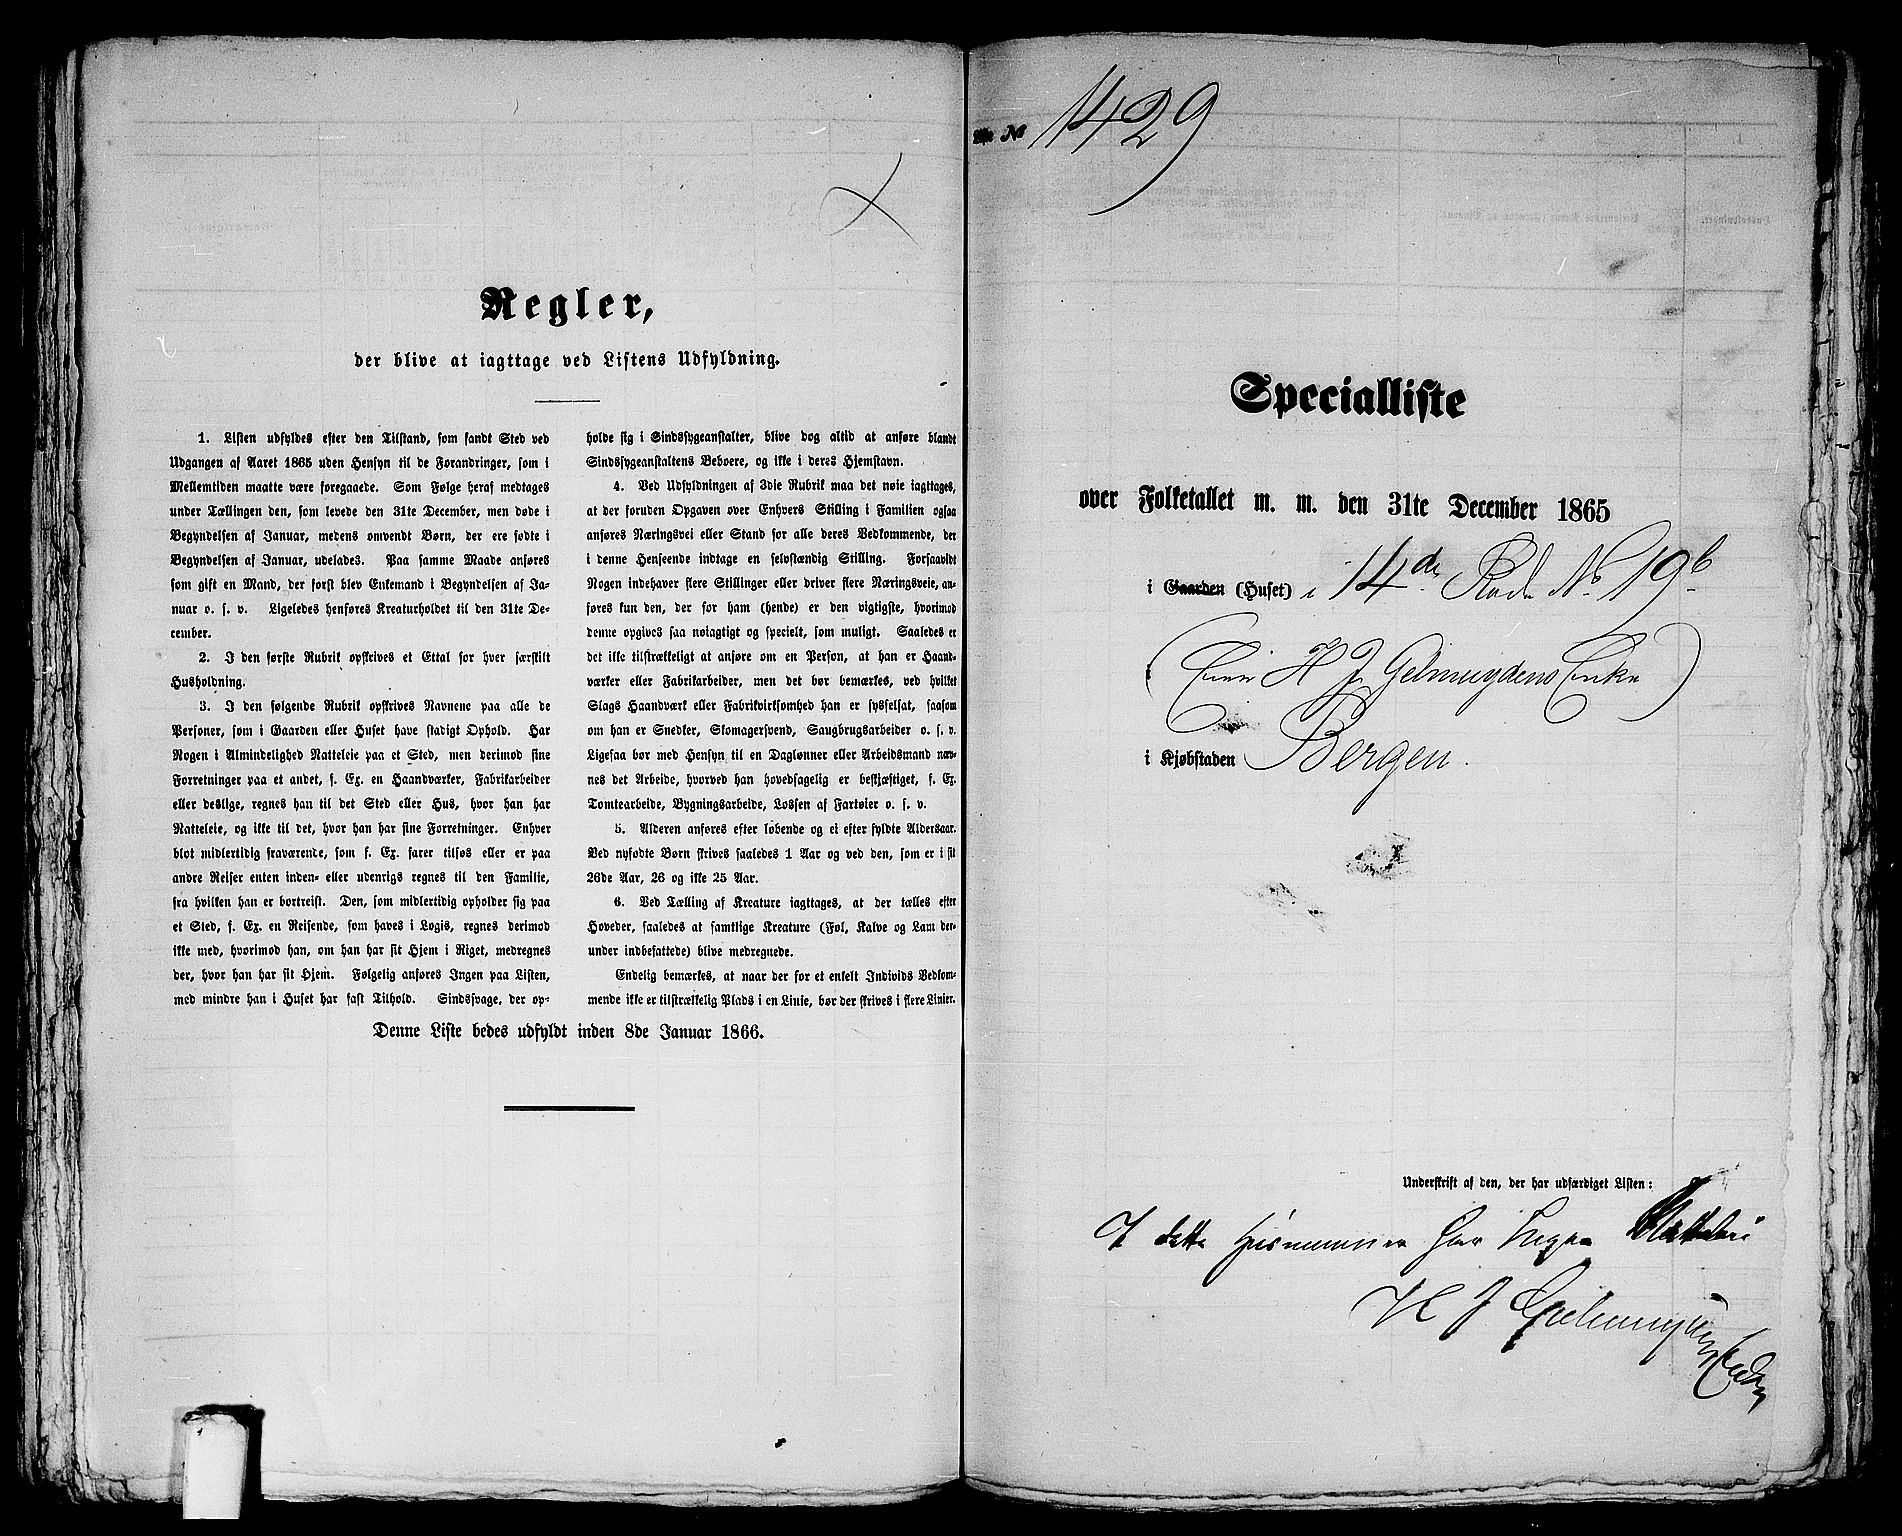 Regler,
der blive at iagttage ved Listens Udfyldning.
1. Listen udfyldes efter den Tilstand, som fandt Sted ved
Udgangen af Aaret 1865 uden Hensyn til de Forandringer, som i
Mellemtiden maatte være foregaaede. Som Følge heraf medtages
under Tællingen den, som levede den 31te December, men døde i
Begyndelsen af Januar, medens omvendt Børn, der ere fødte i
Begyndelsen af Januar, udelades. Paa samme Maade anføres
som gift en Mand, der først blev Enkemand i Begyndelsen af Ja-
nuar o. s. v. Ligeledes henføres Kreaturholdet til den 31te De-
cember.
2. I den første Rubrik opskrives et Ettal for hver særskilt
Husholdning.
3. I den følgende Rubrik opskrives Navnene paa alle de
Personer, som i Gaarden eller Huset have stadigt Ophold. Har
Nogen i Almindelighed Natteleie paa et Sted, men derimod sine
Forretninger paa et andet, f. Ex. en Haandværker, Fabrikarbeider
eller deslige, regnes han til det Sted eller Hus, hvor han har
Natteleie, og ikke til det, hvor han har sine Forretninger. Enhver
blot midlertidig fraværende, som f. Ex. farer tilsøs eller er paa
andre Reiser enten inden- eller udenrigs regnes til den Familie,
fra hvilken han er bortreist. Den, som midlertidig opholder sig paa
et Sted, f. Ex. en Reisende, som haves i Logis, regnes derimod
ikke med, hvorimod han, om han har sit Hjem i Riget, medregnes
der, hvor han har sit Hjem. Følgelig anføres Ingen paa Listen,
med mindre han i Huset har fast Tilhold. Sindssvage, der op-
holde sig i Sindssygeanstalter, blive dog altid at anføre blandt
Sindssygeanstaltens Beboere, og ikke i deres Hjemstavn.
4. Ved Udfyldningen af 3die Rubrik maa det nøie iagttages,
at der foruden Opgaven over Enhvers Stilling i Familien ogsaa
anføres Næringsvei eller Stand for alle deres Vedkommende, der
i denne Henseende indtage en selvstændig Stilling. Forsaavidt
Nogen indehaver flere Stillinger eller driver flere Næringsveie, an-
føres kun den, der for ham (hende) er den vigtigste, hvorimod
denne opgives saa nøiagtigt og specielt, som muligt. Saaledes er
det ikke tilstrækkeligt at anføre om en Person, at han er Haand-
værker eller Fabrikarbeider, men det bør bemærkes, ved hvilket
Slags Haandværk eller Fabrikvirksomhed han er sysselsat, saasom
om han er Snedker, Skomagersvend, Saugbrugsarbeider o. s. v.
Ligesaa bør med Hensyn til en Daglønner eller Arbeidsmand næv-
nes det Arbeide, hvorved han hovedsagelig er beskjæftiget, f. Ex.
Tomtearbeide, Bygningsarbeide, Lossen af Fartøier o. s. v.
5. Alderen anføres efter løbende og ei efter fyldte Aldersaar.
Ved nyfødte Børn skrives saaledes 1 Aar og ved den, som er i sit
26de Aar, 26 og ikke 25 Aar.
6. Ved Tælling af Kreature iagttages, at der tælles efter
Hoveder, saaledes at samtlige Kreature (Føl, Kalve og Lam der-
under indbefattede) blive medregnede.
Endelig bemærkes, at naar der for et enkelt Individs Vedkom-
mende ikke er tilstrækkelig Plads i en Linie, bør der skrives i flere Linier.
Denne Liste bedes udfyldt inden 8de Januar 1866.
No 1429
Specialliste
over Folketallet m. m. den 31te December 1865
i Gaarden (Huset) i 14de Rode No 19b
(Eier H J Gelmuydens Enke)
i Kjøbstaden Bergen.
Underskrift af den, der har udfærdiget Listen:
I dette Husnummer har Ingen Natteleie
H J Gelmuydens Enke